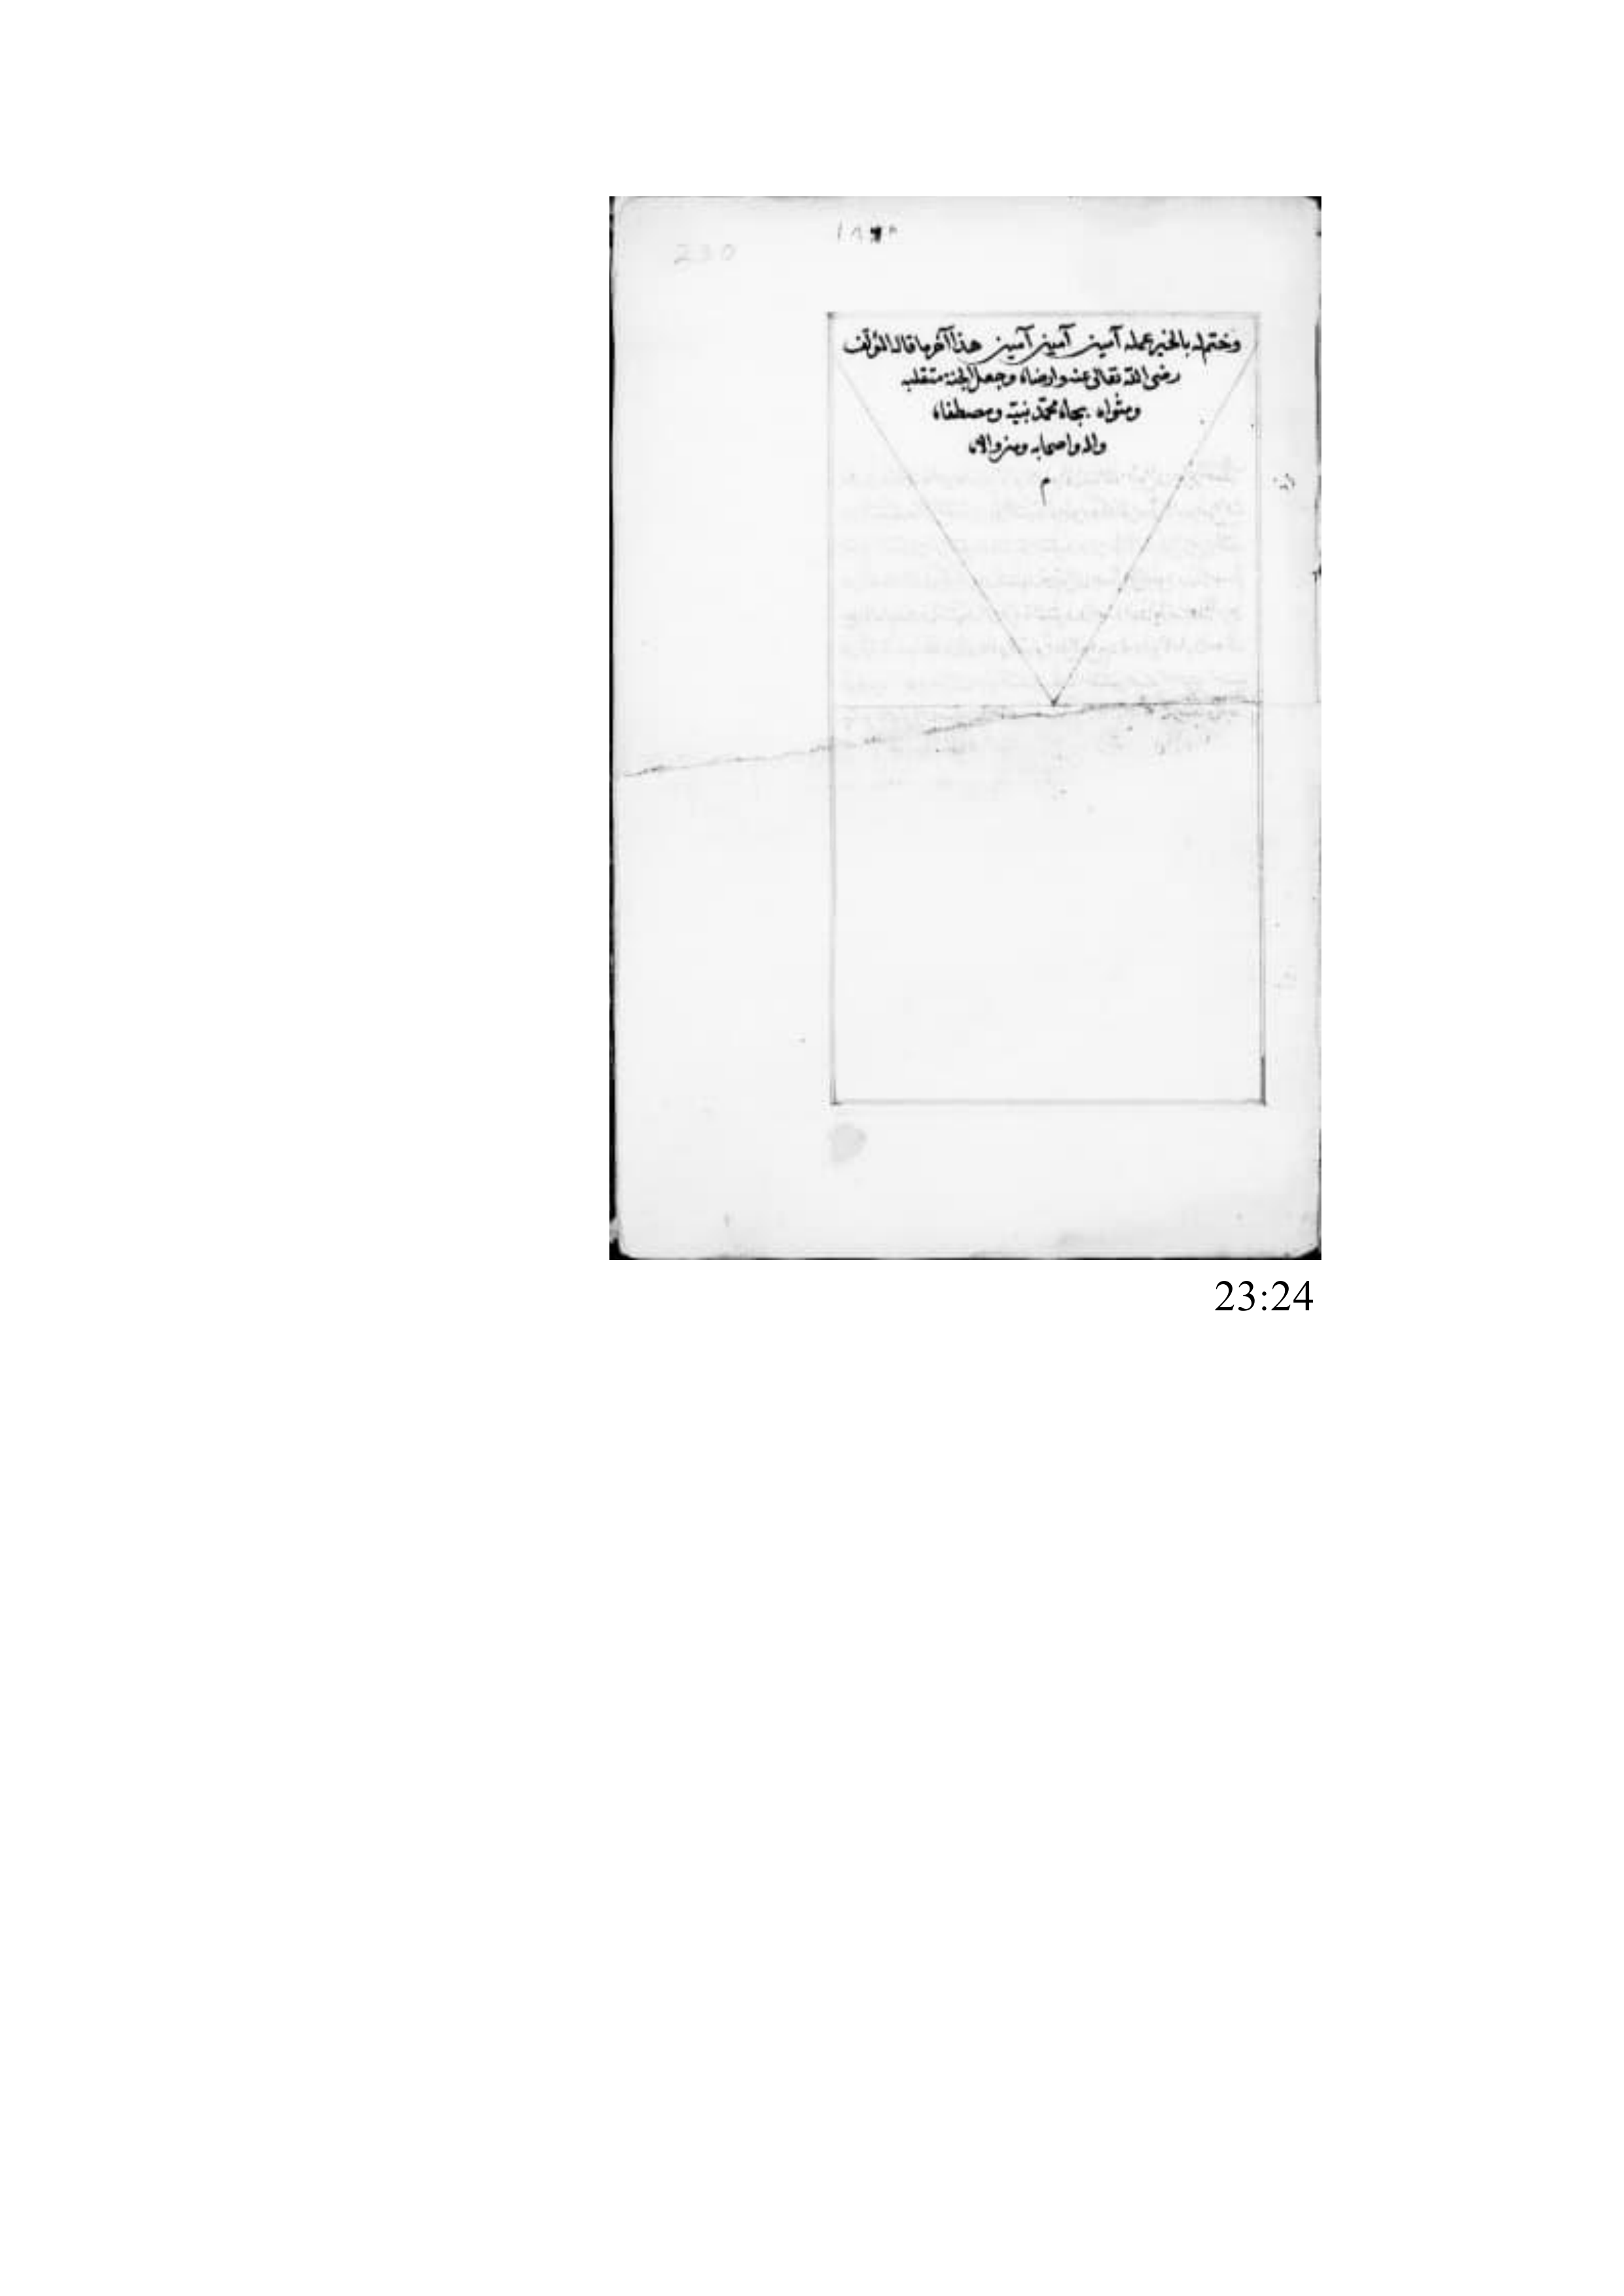 230
وختم له بالخير عمله آمين آمين آمين هذا آخر ما قاله المؤلف
رضى الله تعالى عنه وارضاه وجعل الجنة متقلبه
ومثواه بجاه محمد نبيه ومصطفاه
واله واصحابه ومن والاه
م
23:24